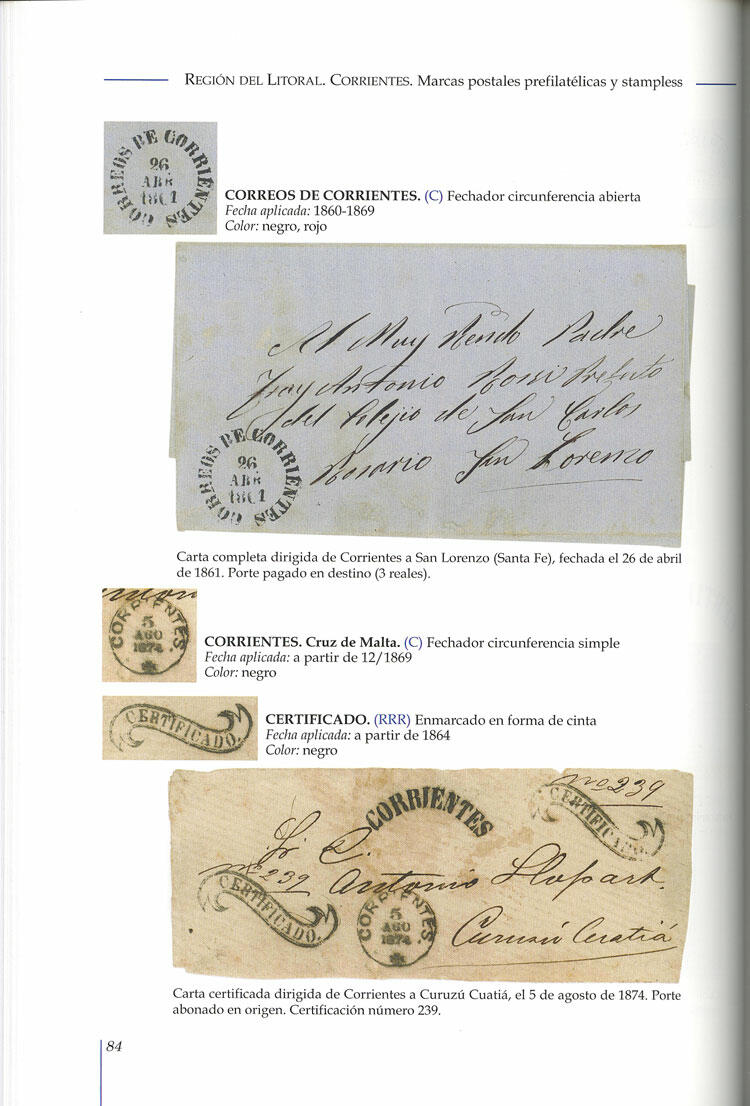 REGIÓN DEL LITORAL. CORRIENTES. Marcas postales prefilatélicas y stampless
CORREOS DE CORRIENTES
26
ABR
1861
CORREOS DE CORRIENTES. (C) Fechador circunferencia abierta
Fecha aplicada: 1860-1869
Color: negro, rojo
Al Muy Rendo Padre
Fray Antonio Rossi Prefecto
del Colejio de San Carlos
Rosario San Lorenzo
CORREOS DE CORRIENTES
26
ABR
1861
Carta completa dirigida de Corrientes a San Lorenzo (Santa Fe), fechada el 26 de abril
de 1861. Porte pagado en destino (3 reales).
CORRIENTES
5
AGO
1874
CORRIENTES. Cruz de Malta. (C) Fechador circunferencia simple
Fecha aplicada: a partir de 12/1869
Color: negro
CERTIFICADO.
CERTIFICADO. (RRR) Enmarcado en forma de cinta
Fecha aplicada: a partir de 1864
Color: negro
CORRIENTES
no 239
CERTIFICADO.
Sr. D.
no 239 Antonio Llopart.
CERTIFICADO.
CORRIENTES
5
AGO
1874
Curuzú Cuatiá
Carta certificada dirigida de Corrientes a Curuzú Cuatiá, el 5 de agosto de 1874. Porte
abonado en origen. Certificación número 239.
84